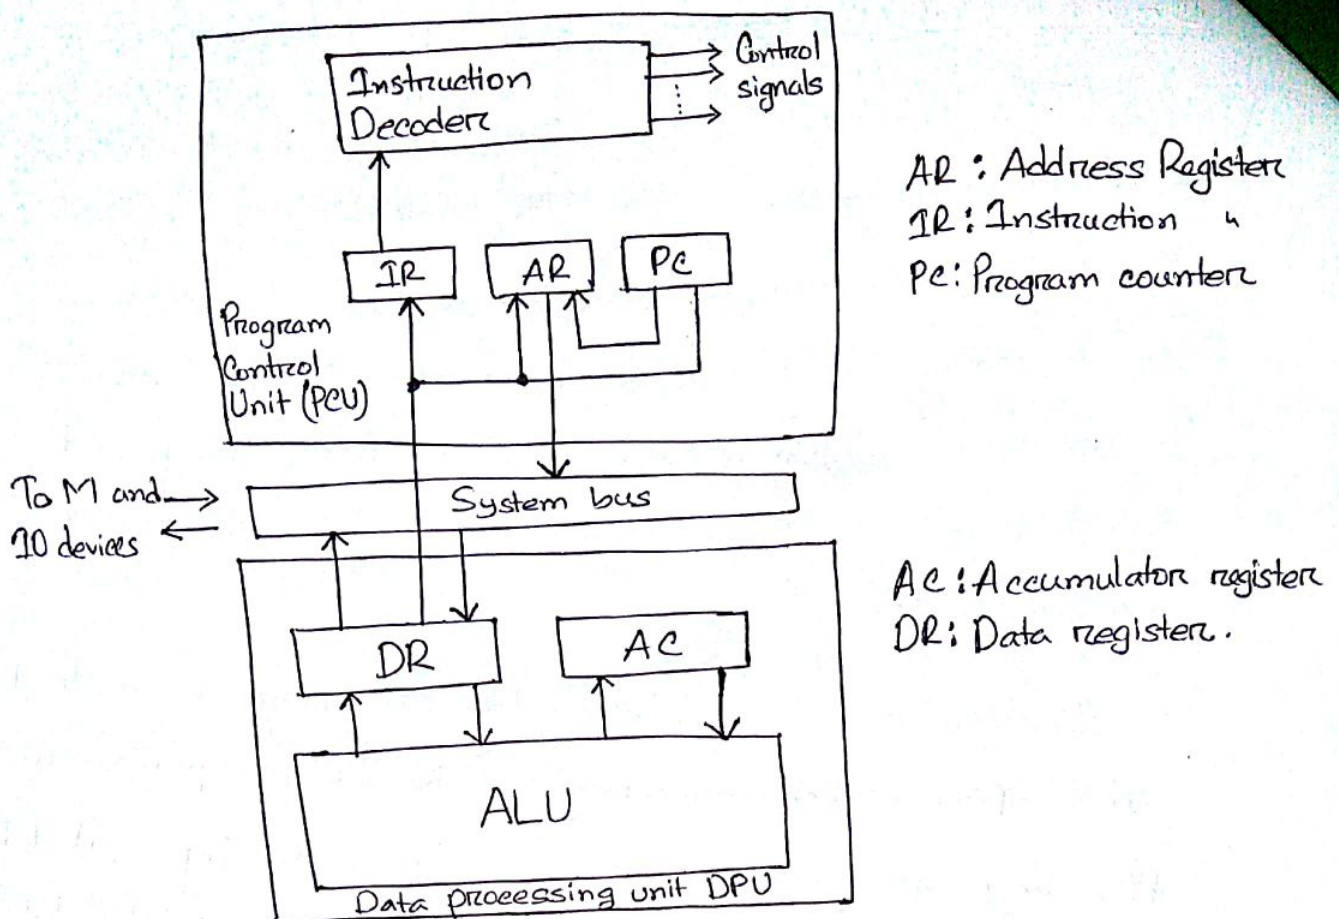 Instruction
Decoder
Control
signals
IR
AR
PC
Program
Control
Unit (PCU)
AR : Address Register
IR : Instruction "
PC : Program counter
To M and
IO devices
System bus
DR
AC
ALU
Data processing unit DPU
AC : Accumulator register
DR : Data register.